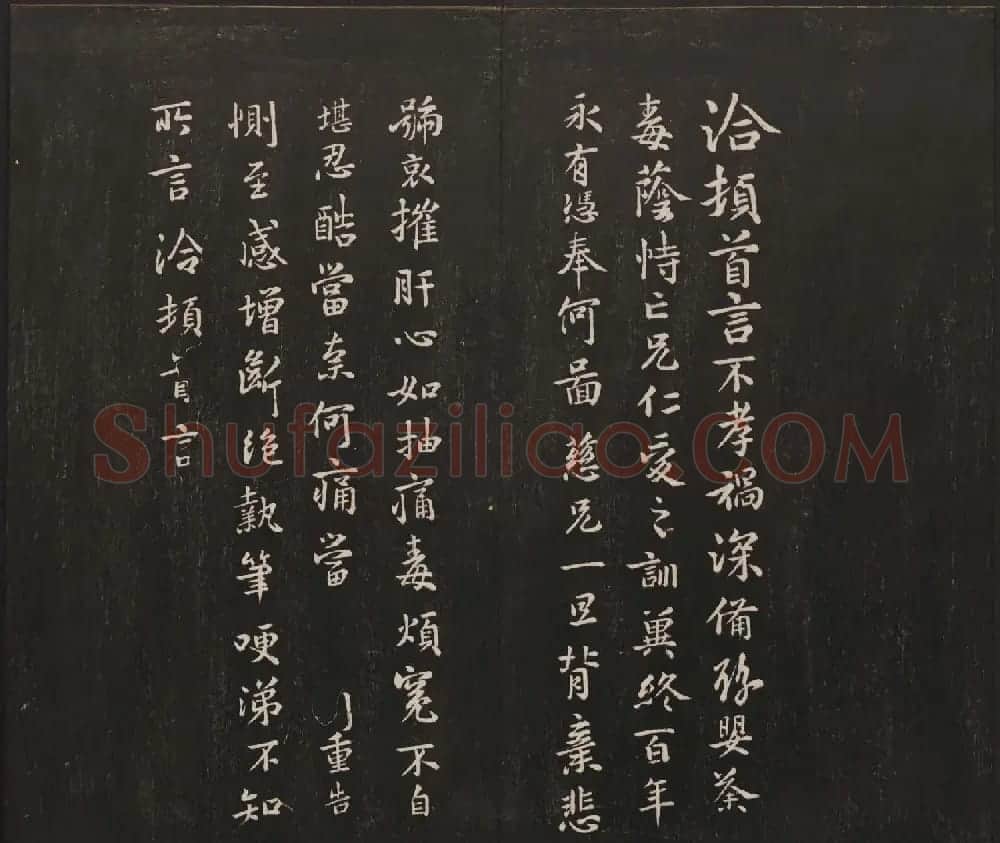 洽頓首言不孝禍深備嬰荼
毒蔭恃亡兄仁愛之訓冀終百年
永有憑奉何啚慈兄一旦背棄悲
號哀摧肝心如抽痛毒煩冤不自
堪忍酷當柰何痛當重告
惻至感增斷絕執筆哽涕不知
所言洽頓首言
Shufaziliao.COM